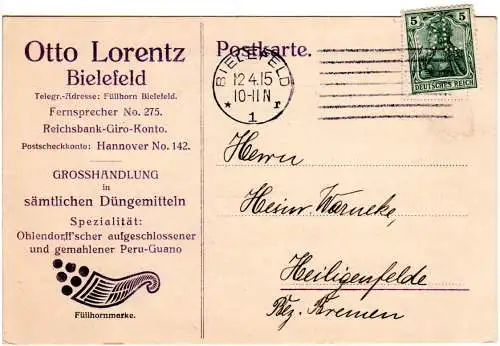 Otto Lorentz
Bielefeld
Telegr.-Adresse: Füllhorn Bielefeld.
Fernsprecher No. 275.
Reichsbank-Giro-Konto.
Postscheckkonto: Hannover No. 142.
GROSSHANDLUNG
in
sämtlichen Düngemitteln
Spezialität:
Ohlendorff'scher aufgeschlossener
und gemahlener Peru-Guano
Füllhornmarke.
Postkarte.
BIELEFELD
12 4.15
10-11 N
* 1 r
5 5
DEUTSCHES REICH
Herrn
Heinr. Warneke,
Heiligenfelde
Bez. Bremen